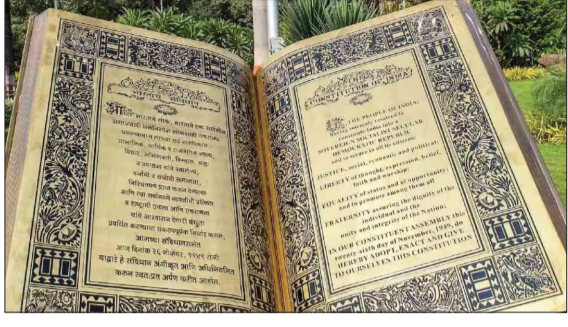 भारताचे संविधान
आम्ही भारताचे लोक, भारताचे एक सार्वभौम
समाजवादी धर्मनिरपेक्ष लोकशाही गणराज्य
घडविण्याचा व त्याच्या सर्व नागरिकांस
सामाजिक, आर्थिक व राजनैतिक न्याय;
विचार, अभिव्यक्ती, विश्वास, श्रद्धा
व उपासना यांचे स्वातंत्र्य;
दर्जाची व संधीची समानता;
निश्चितपणे प्राप्त करून देण्याचा
आणि त्या सर्वांमध्ये व्यक्तीची प्रतिष्ठा
व राष्ट्राची एकता आणि एकात्मता
यांचे आश्वासन देणारी बंधुता
प्रवर्धित करण्याचा संकल्पपूर्वक निर्धार करून,
आमच्या संविधानसभेत
आज दिनांक २६ नोव्हेंबर, १९४९ रोजी
याद्वारे हे संविधान अंगीकृत आणि अधिनियमित
करून स्वतःप्रत अर्पण करीत आहोत.
CONSTITUTION OF INDIA
WE, THE PEOPLE OF INDIA,
having solemnly resolved to
constitute India into a
SOVEREIGN SOCIALIST SECULAR
DEMOCRATIC REPUBLIC
and to secure to all its citizens:
JUSTICE, social, economic and political;
LIBERTY of thought, expression, belief,
faith and worship;
EQUALITY of status and of opportunity;
and to promote among them all
FRATERNITY assuring the dignity of the
individual and the
unity and integrity of the Nation;
IN OUR CONSTITUENT ASSEMBLY this
twenty-sixth day of November, 1949, do
HEREBY ADOPT, ENACT AND GIVE
TO OURSELVES THIS CONSTITUTION